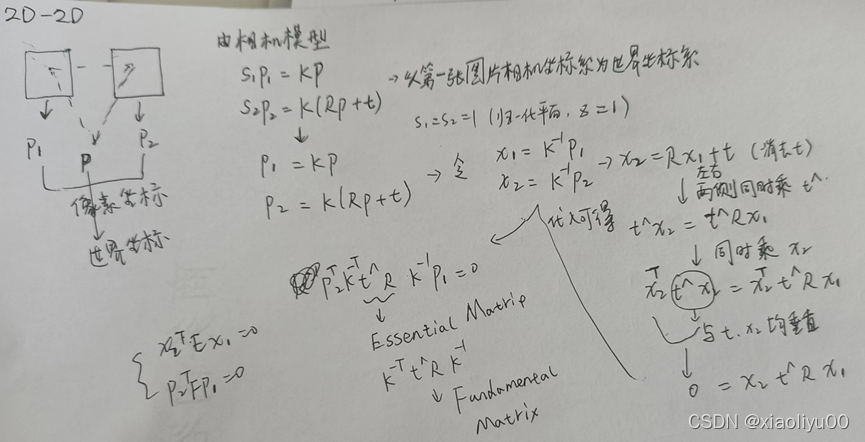 2D-2D
P1
P
P2
像素坐标
世界坐标
由相机模型
S1P1 = KP
S2P2 = K(RP+t)
→以第一张图片相机坐标系为世界坐标系
S1=S2=1 (归一化平面, z=1)
P1 = KP
P2 = K(RP+t)
→ 令
x1 = K^-1 P1
x2 = K^-1 P2
→ x2 = Rx1+t (消去t)
左右
两侧同时乘 t^
t^x2 = t^Rx1
同时乘 x2
x2^T t^x2 = x2^T t^R x1
与 t. x2 均垂直
0 = x2 t^R x1
代入可得
P2^T K^-T t^R K^-1 P1 = 0
Essential Matrix
K^-T t^R K^-1
Fundamental
Matrix
x2^T E x1 = 0
P2^T F P1 = 0
CSDN @xiaoliyu00